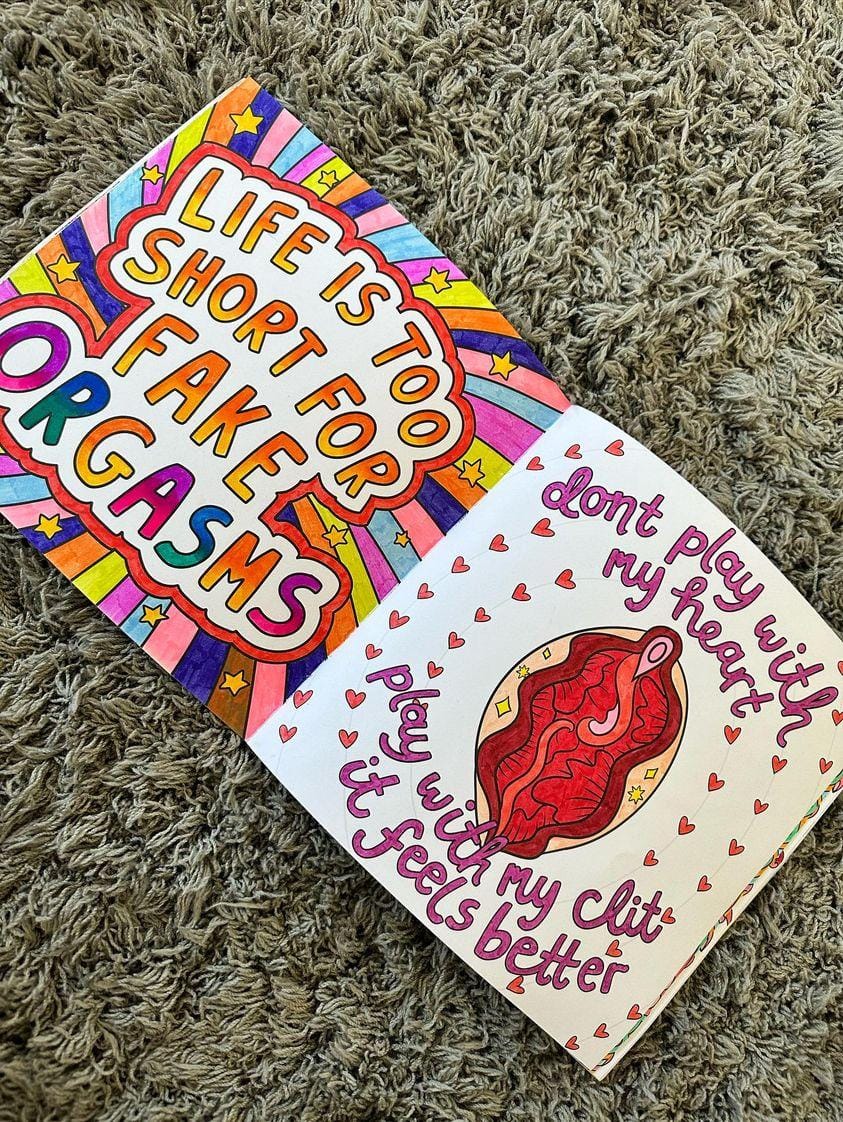 LIFE IS TOO
SHORT FOR
FAKE
ORGASMS
dont play with
my heart
play with my clit
it feels better